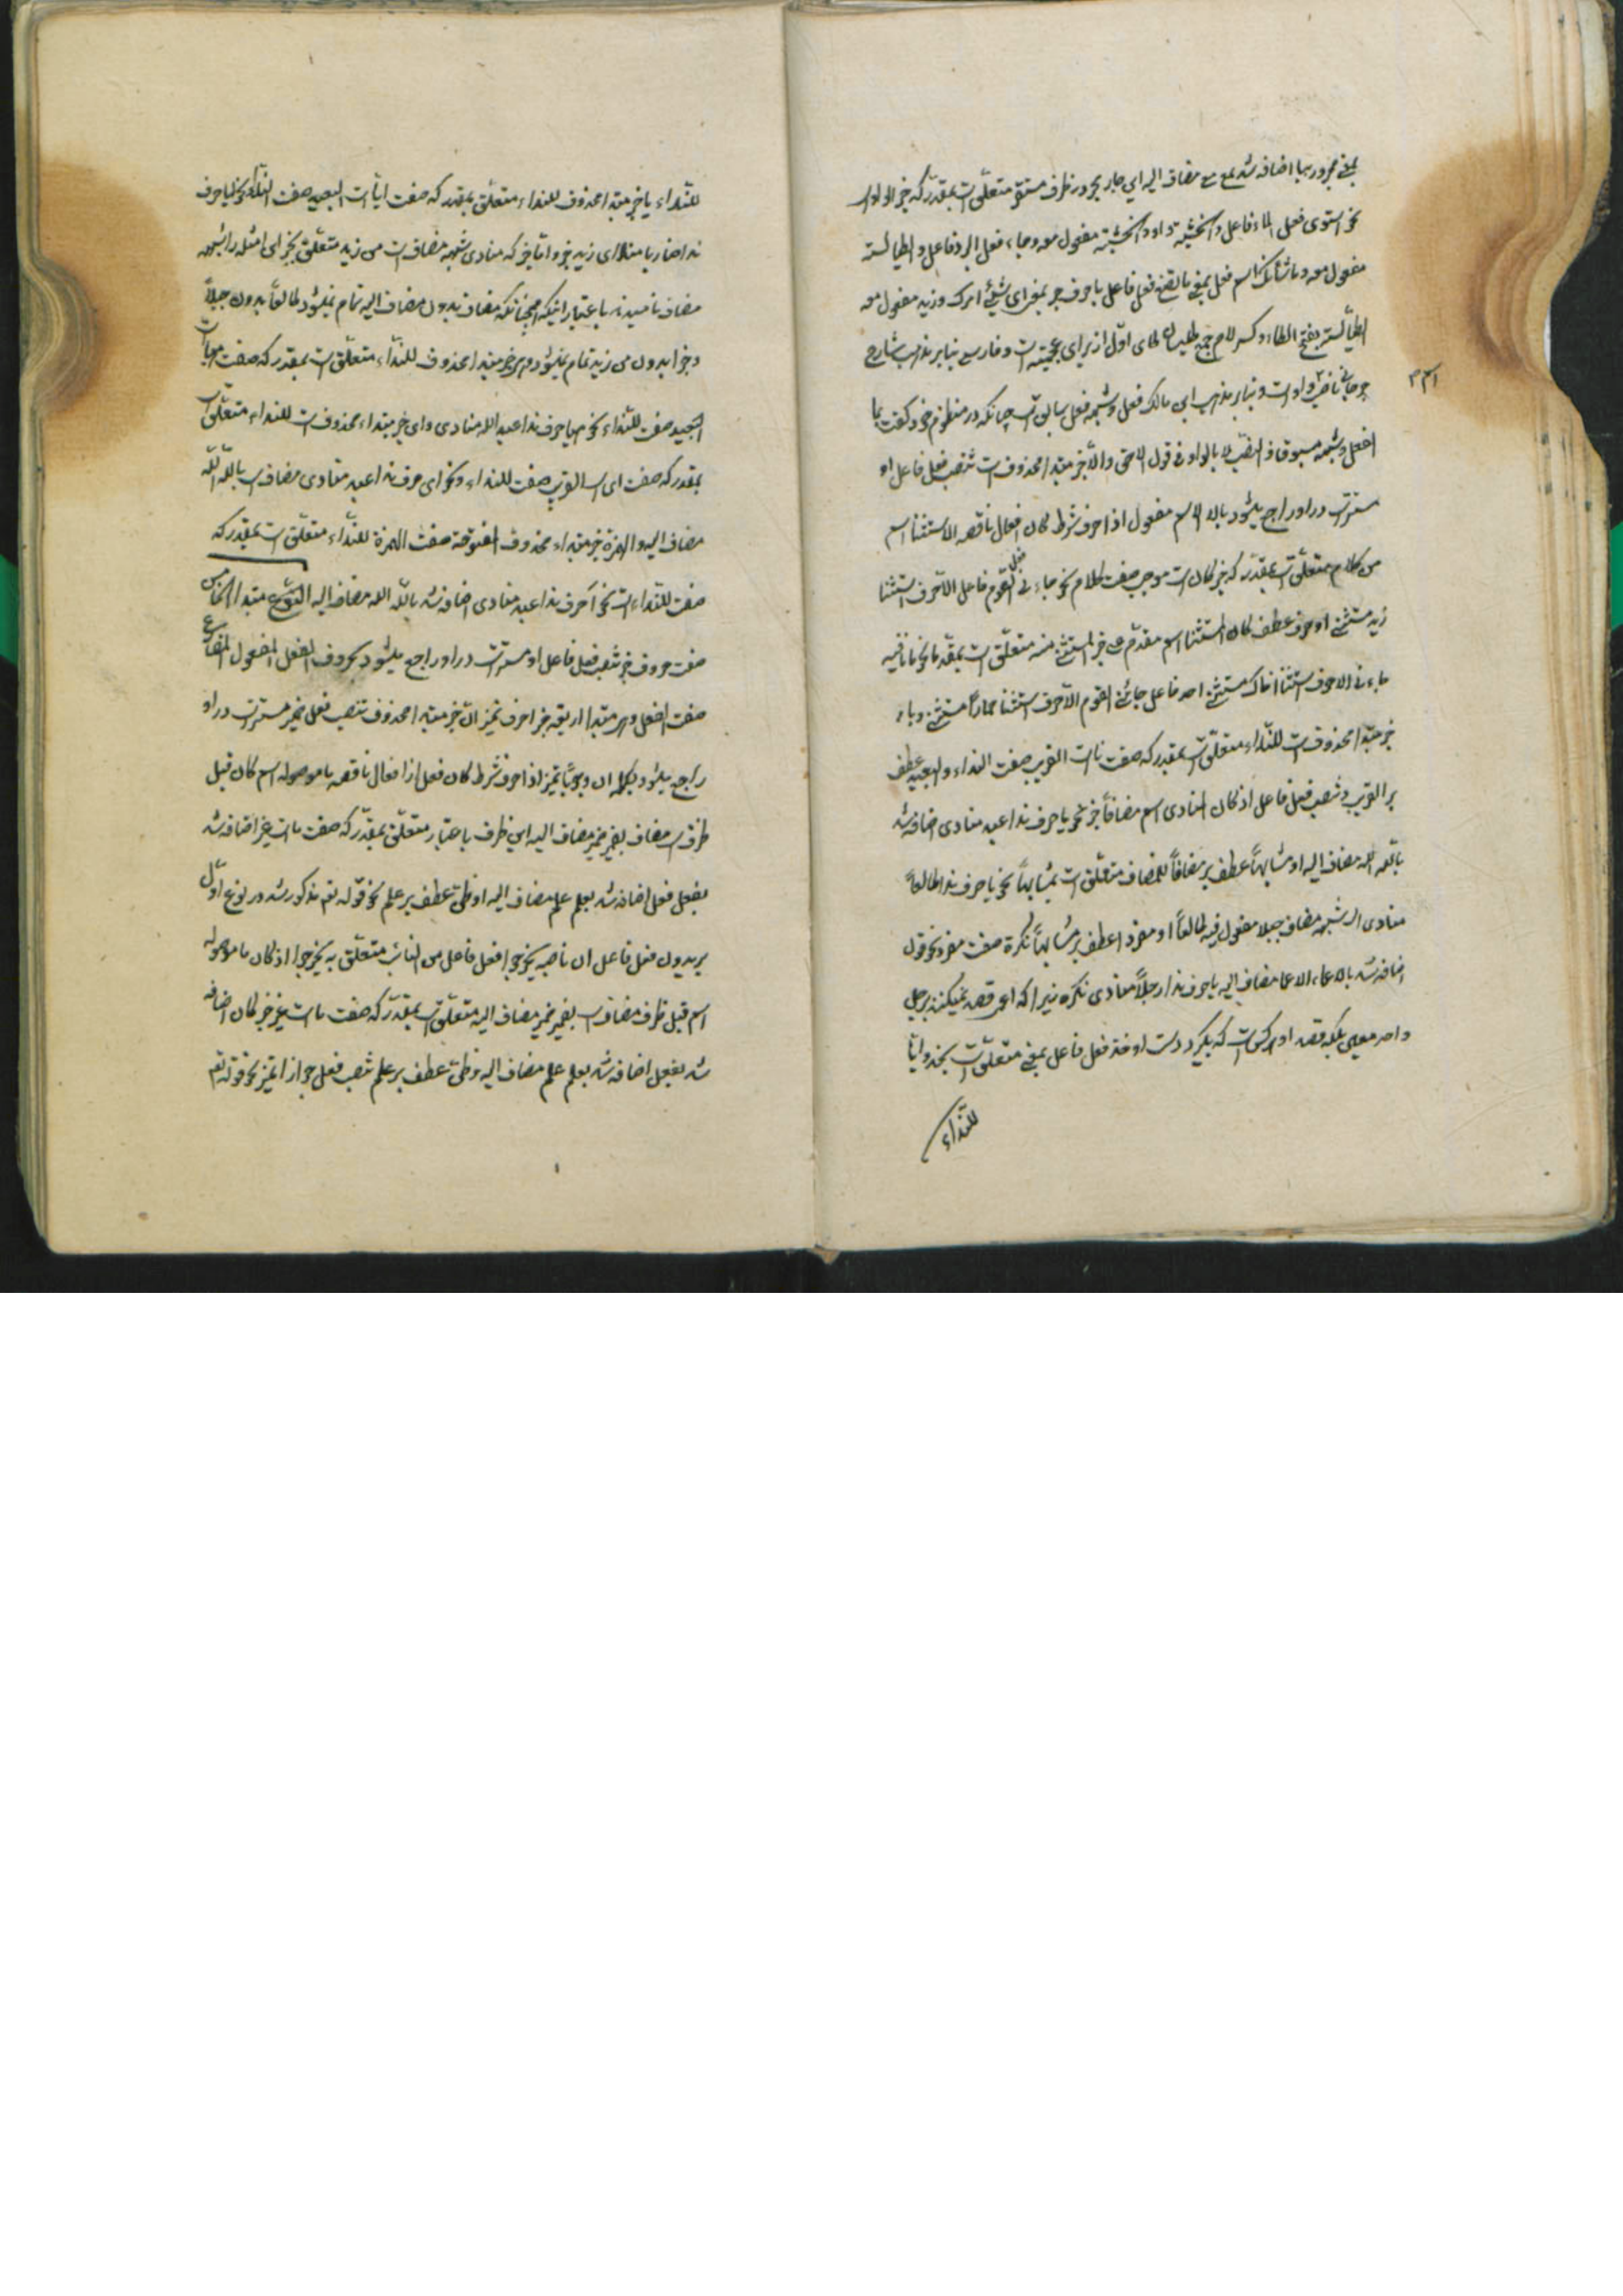 بمعنی مجرور بها اضافه شد مع مع مضاف الیه این جار مجرور ظرف مستقر متعلّق است بمقدّر که خبر الواو است
نحو استوی فعل الماء فاعل و الخشبة واو و الخشبة مفعول معه وجاء فعل البرد فاعل و الطیالسة
مفعول معه و ما شأنک اسم فعل بمعنی ما تصنع فعل فاعل با حرف جر بمعنی ای شیئ امرک و زید مفعول معه
الطیالسة بفتح الطاء و کسر لام جمع طیلسان طای اوّل از برای عجمیّت است و فارسی بنا بر مذهب شارح
جرجانی ناصب واو است و بنا بر مذهب ابن مالک فعل و شبهه فعل سابق است چنانکه در منظوم خود گفت بما
الفعل و شبهه سبق ذا النصب لا بالواو فی قول الاحق و الّا خبر مبتداء محذوف است تنصب فعل فاعل او
مستتر است در او راجع میشود بالا الاسم مفعول اذا حرف شرط کان افعال ناقصه الاستثنا اسم
من کلام متعلّق است بمقدّر که خبر کان است موجب صفت کلام نحو جاءنی فعل القوم فاعل الّا حرف استثنا
زید مستثنی او حرف عطف کان المستثنا اسم مقدّم علی خبر المستثنی منه متعلّق است بمقدّما نحو ما نافیه
جاءنی الا حرف استثنا اخاک مستثنی احد فاعل جائنی القوم الّا حرف استثنا حماراً مستثنی و یاء
خبر مبتداء محذوف است للنّداء متعلّق است بمقدر که صفت یا است القریب صفت النداء و البعید عطف
بر القریب و تنصب فعل فاعل اذ کان المنادی اسم مضافاً خبر نحو یا حرف ندا عبد منادی اضافه شد
باللّه اللّه مضاف الیه او مشابهاً عطف بر مضافاً للمضاف متعلّق است بمشابهاً نحو یا حرف ندا طالعاً
منادی الشبیه مضاف جبلا مفعول فیه طالعاً او مفرداً عطف بر مشابهاً نکرة صفت مفرد نحو قول
اضافه شد بالاعماء الاعما مضاف الیه یا حرف ندا رجلاً منادی نکره زیرا که اعمی قصد نمیکند برجل
واحد معین بلکه قصد او هر کس است که بگیرد دست او خذ فعل فاعل بمعنی متعلّق است بخذ و ایا
للنّداء
للنّداء یا خبر مبتداء محذوف للنداء متعلّق بمقدر که صفت ایا است البعید صفت النداء نحو ایا حرف
ندا ضاربا منادای زید خبر و اتیا خبر که منادی شبهه مضاف است من زید متعلّق بخبر این امثله را شبهه
مضاف نامیدند باعتبار اینکه همچنانکه مضاف بدون مضاف الیه تمام نمیشود طالعاً بدون جبلاً
و خبرا بدون من زید تمام نمیشود و هیا خبر مبتداء محذوف للنّداء متعلّق است بمقدر که صفت هیا است
البعید صفت للنّداء نحو هیا حرف ندا عبد اللّه منادی و ای خبر مبتداء محذوف است للنداء متعلّق است
بمقدر که صفت ای است القریب صفت للنداء و نحو ای حرف ندا عبد منادی مضاف است باللّه اللّه
مضاف الیه و الهمزة خبر مبتداء محذوف المفتوحة صفت الهمزة للنّداء متعلّق است بمقدر که
صفت للنّداء است نحو أ حرف ندا عبد منادی اضافه شد باللّه اللّه مضاف الیه النّوع مبتدا الخامس
صفت حروف خبر تنصب فعل فاعل او مستتر است در او راجع میشود بحروف الفعل المفعول المضارع
صفت الفعل و هی مبتدا اربعة خبر احرف تمیز ان خبر مبتداء محذوف تنصب فعل ضمیر مستتر است در او
راجع میشود بکلمه ان وجوباً تمیز اذا حرف شرط کان فعل از افعال ناقصه ما موصوله اسم کان قبل
ظرف است مضاف بضمیر ضمیر مضاف الیه این ظرف باعتبار متعلّق بمقدّر که صفت ما است غیر اضافه شد
بفعل فعل اضافه شد بعلم علم مضاف الیه او ظنّ عطف بر علم نحو قوله تعم مذکور شد در نوع اوّل
یریدون فعل فاعل ان ناصبه یخرجوا فعل فاعل من النار متعلّق به یخرجوا اذ کان ما موصوله
اسم قبل ظرف مضاف است بضمیر ضمیر مضاف الیه متعلّق است بمقدّر که صفت ما است غیر خبر کان اضافه
شد بفعل اضافه شد بعلم علم مضاف الیه و ظنّ عطف بر علم تنصب فعل جوازا تمیز نحو قوله تعم